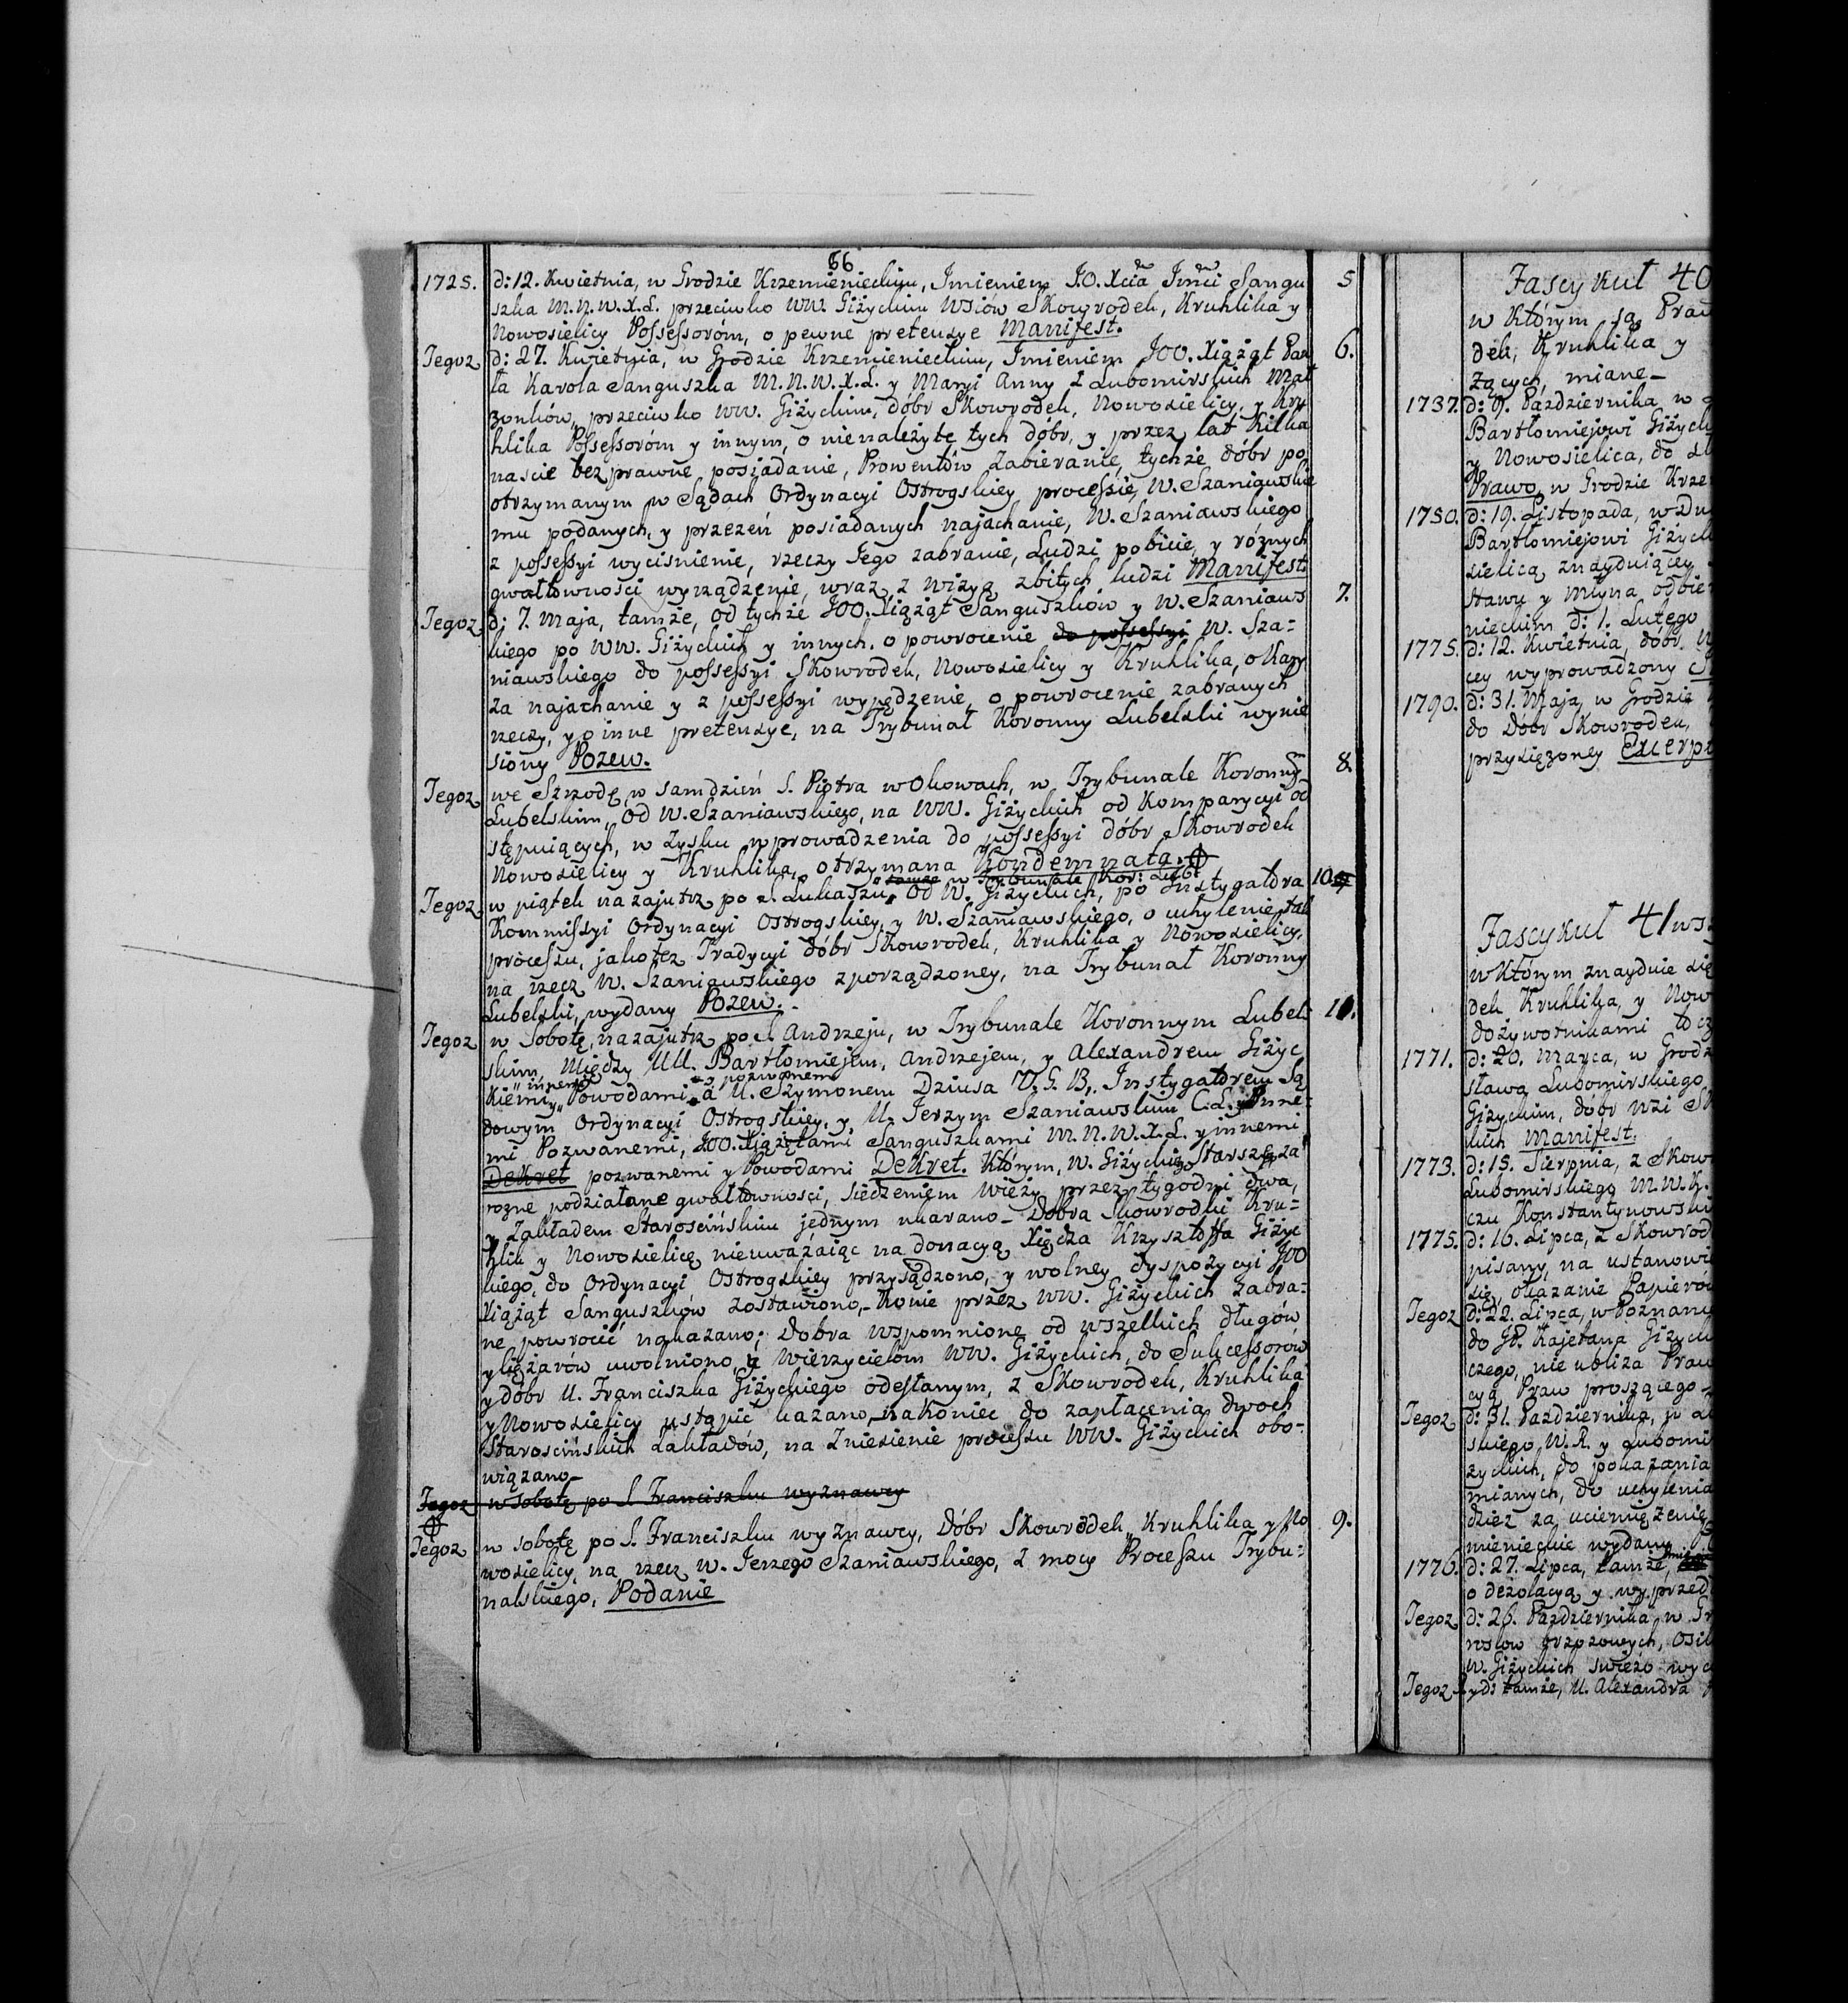 66
1725. d: 12. Kwietnia, w Grodzie Krzemienieckim, Imieniem J.O. Xcia Jmci Sangu 5
szka M.N.W.X.L. przeciwko WW. Giżyckim Wsiów Skowrodek, Kruhlika y
Nowosielicy Possessoróm, o pewne pretensye Manifest.
Tegoz d: 27. Kwietnia, w Grodzie Krzemienieckim, Imieniem JOO. Xiążąt Paw 6.
ła Karola Sanguszka M.N.W.X.L. y Maryi Anny z Lubomirskich Mał
zonków, przeciwko WW. Giżyckim, dóbr Skowrodek, Nowosielicy, y Kru
hlika Possessoróm y innym, o nienależyte tych dóbr, y przez lat kilka
nascie bezprawne posiadanie, Prowentów Zabieranie, tychże dóbr po
otrzymanym w Sądach Ordynacyi Ostrogskiey processie, W. Szaniawskie
mu podanych, y przezeń posiadanych najachanie, W. Szaniawskiego
z possessyi wycisnienie, rzeczy Jego zabranie, Ludzi pobicie, y różnych
gwałtowności wyrządzenie, wraz z wizyą zbitych ludzi Manifest.
Tegoz d: 7. Maja, tamże, od tychże JOO. Xiążąt Sanguszków y W. Szaniaws 7.
kiego po WW. Giżyckich y innych, o powrocenie do possessyi W. Sza=
niawskiego do possessyi Skowrodek, Nowosielicy y Kruhlika, o Kary
za najachanie y z possessyi wypędzenie, o powrocenie zabranych
rzeczy, y o inne pretensye, na Trybunał Koronny Lubelski wynie
siony Pozew.
Tegoz we Szrodę, w samdzień S. Piotra w Okowach, w Trybunale Koronnym 8.
Lubelskim, od W. Szaniawskiego, na WW. Giżyckich od Komparycyi od
stępuiących, w zysku wprowadzenia do possessyi dóbr Skowrodek
Nowosielicy y Kruhlika, otrzymana Kondemnata.
w Trybunale Kor: Lub:
Tegoz w piątek nazajutrz po S. Łukaszu, od W. Giżyckich, po Instygatora 10.
Kommissyi Ordynacyi Ostrogskiey, y W. Szaniawskiego, o uchylenie tak
procesu, jakotez Tradycyi dóbr Skowrodek, Kruhlika y Nowosielicy,
na rzecz W. Szaniawskiego zporządzoney, na Trybunał Koronny
Lubelski, wydany Pozew.
Tegoz w Sobotę, nazajutrz po S. Andrzeju, w Trybunale Koronnym Lubel 11.
skim, Między UU. Bartłomiejem, Andrzejem, y Alexandrem Giżyc
y innemi pozwanemi
Kiemi Powodami a U. Szymonem Dziusa Instygatorem Są
dowym Ordynacyi Ostrogskiey, y U. Jerzym Szaniawskim C.L. Inne=
mi Pozwanemi, JOO. Xiążętami Sanguszkami M.N.W.X.L. y innemi
Dekret pozwanemi y Powodami Dekret. Którym, W. Giżyckiego Starszego za
rozne podziałane gwałtownosci, siedzeniem wieży przez tygodni dwa,
y Zakładem Starościńskim jednym ukarano_ Dobra Skowrodki Kru=
hlik y Nowosielicę nieuważaiąc na donacyą Xiędza Krzysztoffa Giżyc
kiego, do Ordynacyi Ostrogskiey przysądzono, y wolney dyspozycyi JOO
Xiążąt Sanguszków zostawiono,_ Konie przez WW. Giżyckich zabra=
ne powrocić nakazano; Dobra wspomnione od wszelkich długów
y ciężarów uwolniono, y Wierzycielom WW. Giżyckich, do Sukcessorów
y dóbr U. Franciszka Giżyckiego odesłanym, z Skowrodek, Kruhlika
y Nowosielicy ustąpić kazano, nakoniec do zapłacenia dwoch
Starościńskich Zakładów, na Zniesienie procesu WW. Giżyckich obo=
wiązano_
Tegoz w sobotę po S. Franciszku wyznawcy
Tegoz w sobotę po S. Franciszku wyznawcy, Dóbr Skowrodek, Kruhlika y No 9.
wosielicy, na rzecz W. Jerzego Szaniawskiego, z mocy Procesu Trybu=
nalskiego, Podanie
Fascykuł 40
w którym są Praw
dek, Kruhlika y
żących, miane_
1737. d: 9. Pazdziernika, w
Bartłomiejowi Giżyck
y Nowosielica, do
Prawo, w Grodzie Krze
1750. d: 19. Listopada, w
Bartłomiejowi Giżyck
sielicą znayduiącey
Stawu y Młyna odbie
nieckim d: 1. Lutego
1775. d: 12. Kwietnia, dóbr
cey wyprowadzony
1790. d: 31. Maja, w Grodzie
do Dóbr Skowrodek,
przysiężoney Excerpt
Fascykuł 41
w którym znayduie się
dek Kruhlika, y Now
dożywotnikami tocz
1771. d: 20. Marca, w Grodz
sława Lubomirskiego
Giżyckim, dóbr wsi Sk
kich Manifest.
1773. d: 15. Sierpnia, z Skow
Lubomirskiego M.W.K.
czu Konstantynowski
1775. d: 16. Lipca, z Skowrod
pisany, na ustanowi
się, okazanie Papieró
Tegoz d: 22. Lipca, w Poznani
do JP. Kajetana Giżyck
czego, nie ubliża Praw
cyą Praw proszącego_
Tegoz d: 31. Pazdziernika, w
skiego W.R. y Lubomi
życkich, do pokazania
mianych, do uchylenia
dzież za uciemiężenie
mienieckie wydany
1776. d: 27. Lipca, tamże,
o dezolacyą y wyprzed
Tegoz d: 26. Pazdziernika, w Gr
wsiow
W. Giżyckich świeżo wyc
Tegoz tamże, U. Alexandra